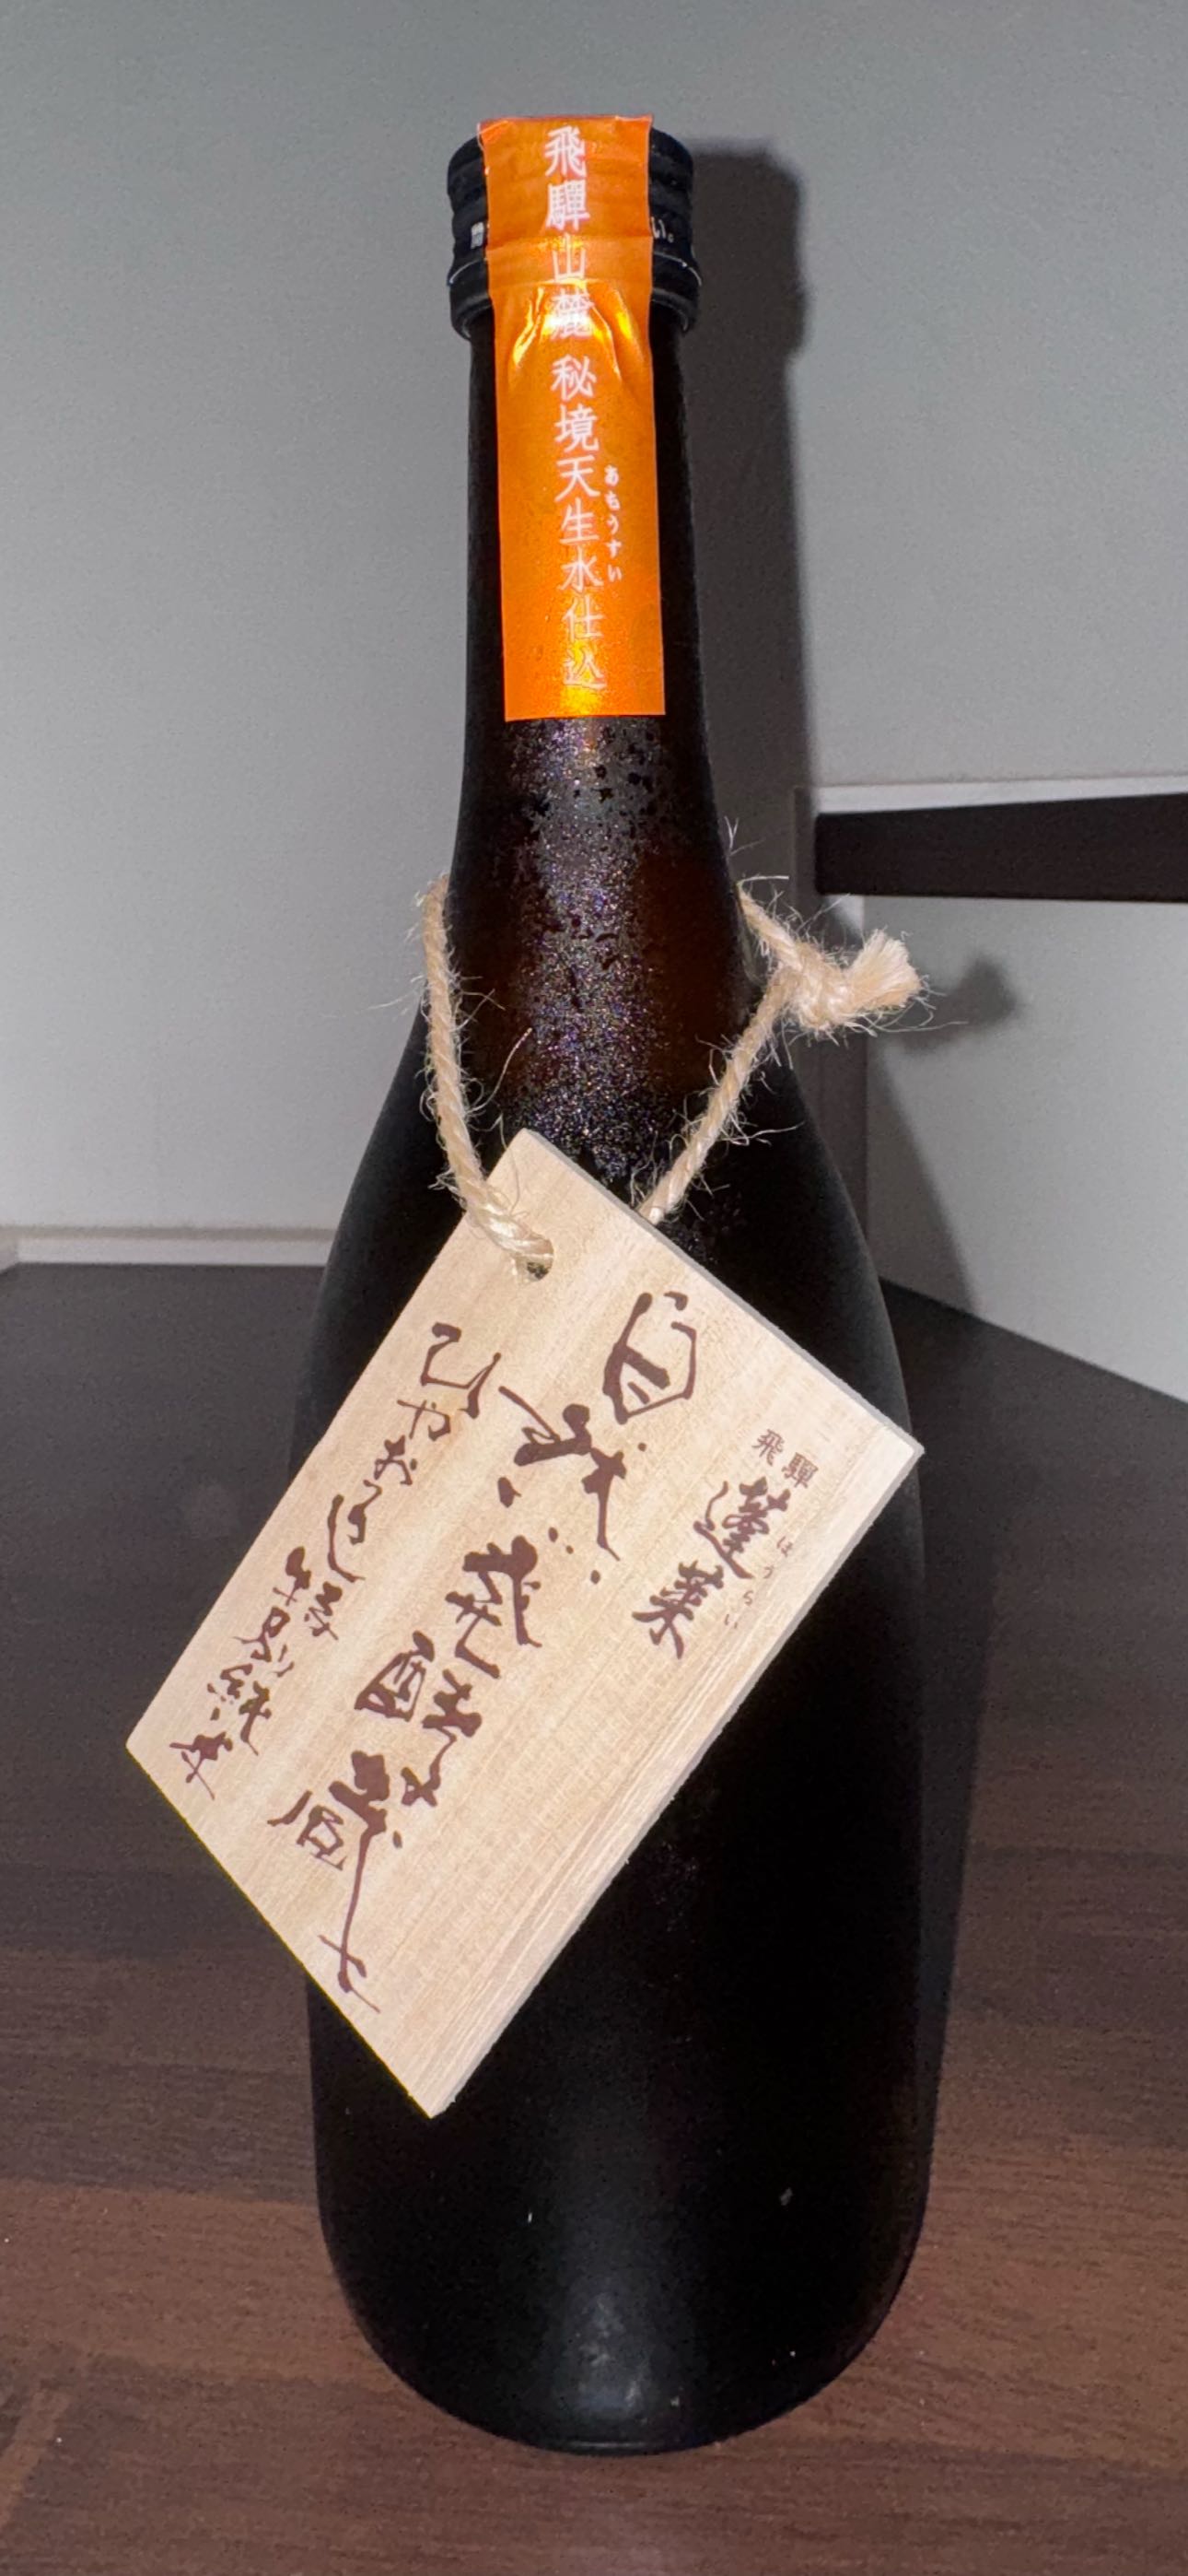 飛騨山麓 秘境天生水仕込
あもうすい
い。
飛騨
蓬莱
ほうらい
自然発酵蔵
ひやおろし 特別純米